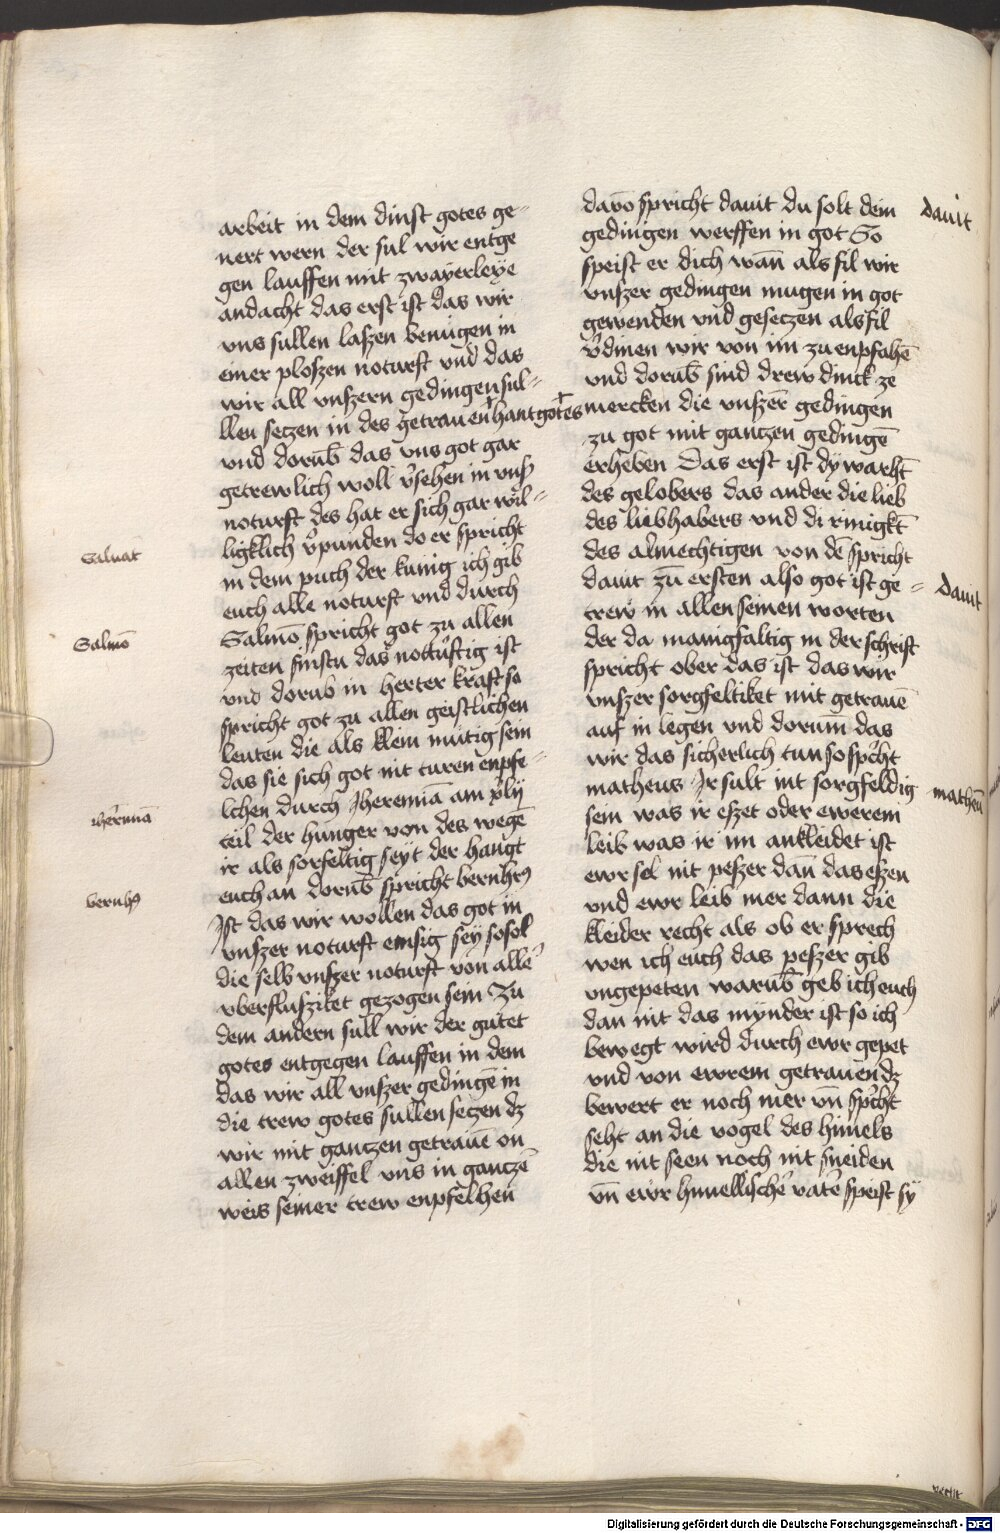 arbeit in dem dinst gotes ge=
nert wern der sul wir entge
gen lauffen mit zwayerleÿe
andacht das erst ist das wir
vns sullen laszen benugen in
einer ploszen noturft vnd das
wir all vnszern gedingen sul=
llen seczen in des getrauen hant gotes
vnd dorūb das vns got gar
getrewlich woll v̓sehen in vnsz
noturft des hat er sich gar wil=
ligklich v̓punden do er spricht
Saluat
in dem puch der kunig ich gib
euch alle noturft vnd durch
Salmō
Salmō spricht got zu allen
zeiten finstu das notturftig ist
vnd dorub in herter kraft so
spricht got zu allen geistlichen
leuten die als klein mutig sein
das sie sich got nit turen enpfe=
lchen durch Jheremiā am xlij
iheremiā
teil der hunger von des wegē
ir als sorfeltig seÿt der hangt
euch an dorūb spricht bernhꝰ
bernhꝰ
Jst das wir wollen das got in
vnszer noturft emsig seÿ so sol
die selb vnszer noturft von allē
vberflusziket gezogen sein Zu
dem andern sull wir der gutet
gotes entgegen lauffen in dem
das wir all vnszer gedingē in
die trew gotes sullen seczen dz
wir mit ganczen getrauē on
allen zweiffel vns in ganczē
weis seiner trew enpfelhen
davō spricht dauit du solt dein
dauit
gedingen werffen in got So
speist er dich wān als fil wir
vnszer gedingen mugen in got
gewenden vnd geseczen als fil
v̓dinen wir von im zu enpfahē
vnd dorūb sind drew dinck ze
mercken die vnszer gedingen
zu got mit ganczen gedingē
erheben Das erst ist dÿ warhēt
des gelobers das ander die lieb
des liebhabers vnd di rinigkēt
des almechtigen von dē spricht
dauit zū ersten also got ist ge=
dauit
trew in allen seinen worten
der da manigfaltig in der schrift
spricht ober das ist das wir
vnszer sorgfeltiket mit getrauē
auf in legen vnd dorum das
wir das sicherlich tun so spͦcht
matheus Jr sult nit sorgfeldig
matheū
sein was ir eszet oder ewerem
leib was ir im ankleidet ist
ewr sel nit peszer dān das eszen
vnd ewr leib mer dann die
kleider recht als ob er sprech
wen ich euch das peszer gib
vngepeten warūb geb ich euch
dan nit das mÿnder ist so ich
bewegt wird durch ewr gepet
vnd von ewrem getrauen dz
bewert er noch mer vn̄ spͦcht
seht an die vogel des himels
die nit seen noch nit sneiden
vn̄ ewr himellischer vater speist sÿ
Digitalisierung gefördert durch die Deutsche Forschungsgemeinschaft - DFG